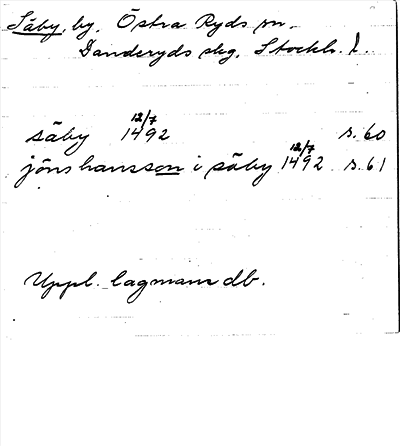 Säby, by, Östra Ryds sn.
Danderyds skg, Stockh. l.
säby 12/7 1492 s. 60
jöns hansson i säby 12/7 1492 s. 61
Uppl. lagmans db.